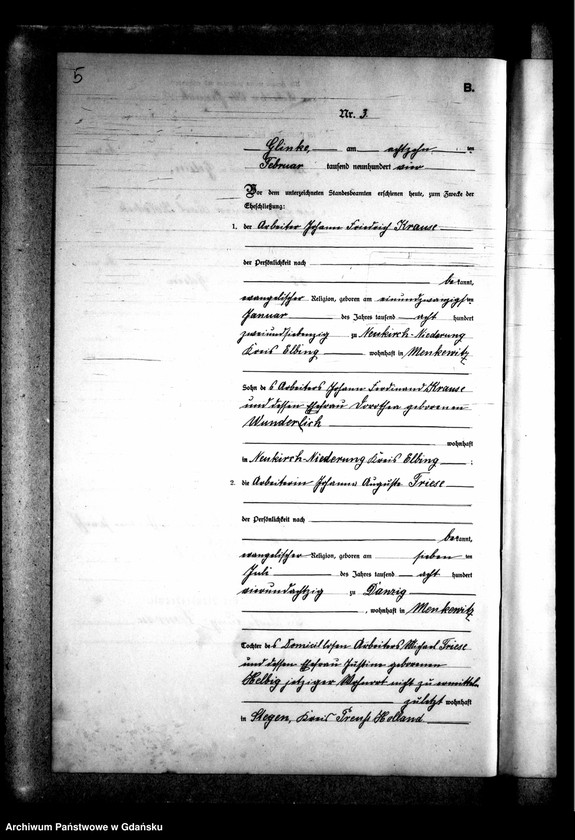 5
B.
Nr. 3.
Glinke, am achtzehn ten
Februar tausend neunhundert vier
Vor dem unterzeichneten Standesbeamten erschienen heute, zum Zwecke der
Eheschließung:
1. der Arbeiter Johann Friedrich Krause
der Persönlichkeit nach
be kannt,
evangelischer Religion, geboren am einundzwanzigsten
Januar des Jahres tausend acht hundert
zweiundsiebenzig zu Neukirch-Niederung
Kreis Elbing wohnhaft in Menkewitz
Sohn des Arbeiters Johann Ferdinand Krause
und dessen Ehefrau Dorothea geborenen
Wunderlich
wohnhaft
in Neukirch-Niederung Kreis Elbing ;
2. die Arbeiterin Johanna Auguste Friese
der Persönlichkeit nach
be kannt,
evangelischer Religion, geboren am sieben ten
Juli des Jahres tausend acht hundert
vierundachtzig zu Danzig
, wohnhaft in Menkewitz
Tochter des Domicillosen Arbeiters Michael Friese
und dessen Ehefrau Justine geborenen
Helbig jetziger Wohnort nicht zu ermitteln
zuletzt wohnhaft
in Stegen, Kreis Preuß Holland
Archiwum Państwowe w Gdańsku